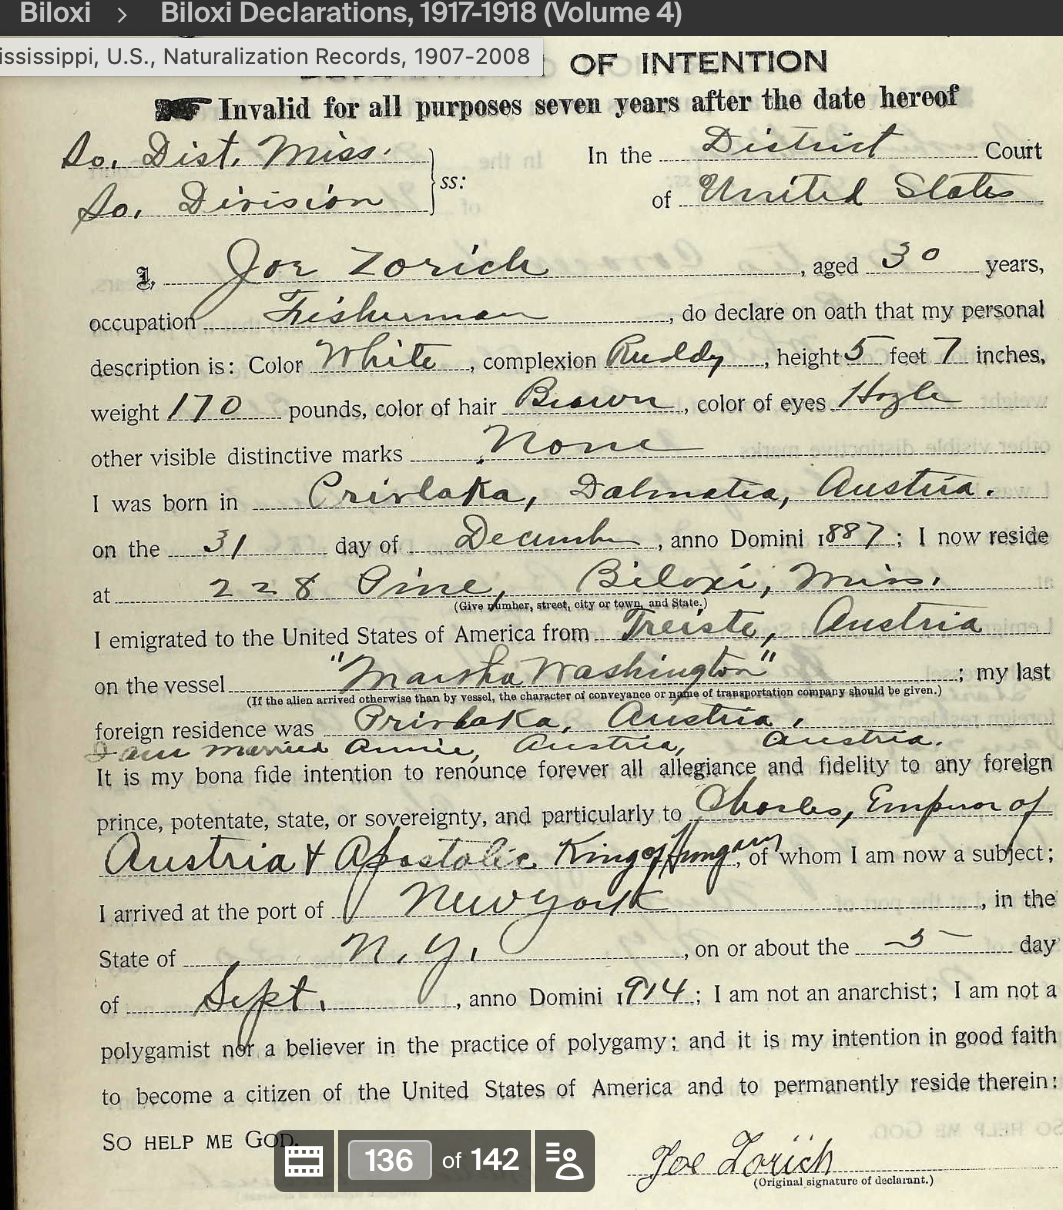 Biloxi > Biloxi Declarations, 1917-1918 (Volume 4)
ississippi, U.S., Naturalization Records, 1907-2008
OF INTENTION
Invalid for all purposes seven years after the date hereof
So. Dist. Miss. In the District Court
So. Division ss: of United States
I, Joe Zorich, aged 30 years,
occupation Fisherman, do declare on oath that my personal
description is: Color White, complexion Ruddy, height 5 feet 7 inches,
weight 170 pounds, color of hair Brown, color of eyes Hozle
other visible distinctive marks None
I was born in Privlaka, Dalmatia, Austria.
on the 31 day of December, anno Domini 1887; I now reside
at 228 Pine, Biloxi, Miss.
(Give number, street, city or town, and State.)
I emigrated to the United States of America from Treiste, Austria
on the vessel "Marsha Washington"; my last
(If the alien arrived otherwise than by vessel, the character of conveyance or name of transportation company should be given.)
foreign residence was Privlaka, Austria.
I am married Annie, Austria, Austria.
It is my bona fide intention to renounce forever all allegiance and fidelity to any foreign
prince, potentate, state, or sovereignty, and particularly to Charles, Emperor of
Austria & Apostolic King of Hungary, of whom I am now a subject;
I arrived at the port of New York, in the
State of N. Y., on or about the 5 day
of Sept., anno Domini 1914; I am not an anarchist; I am not a
polygamist nor a believer in the practice of polygamy; and it is my intention in good faith
to become a citizen of the United States of America and to permanently reside therein:
SO HELP ME GOD.
136 of 142
Joe Zorich
(Original signature of declarant.)